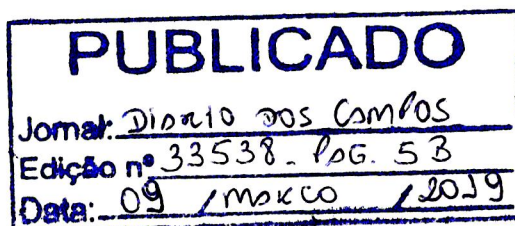 PUBLICADO
Jornal: DIARIO DOS CAMPOS
Edição nº 33538 - PAG. 5B
Data: 09 / MARCO / 2019